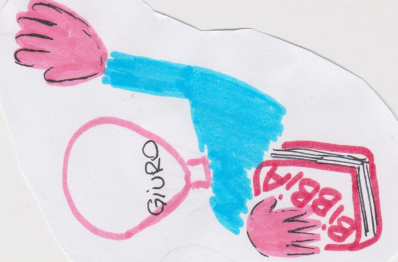 GiURO
BiBBiA